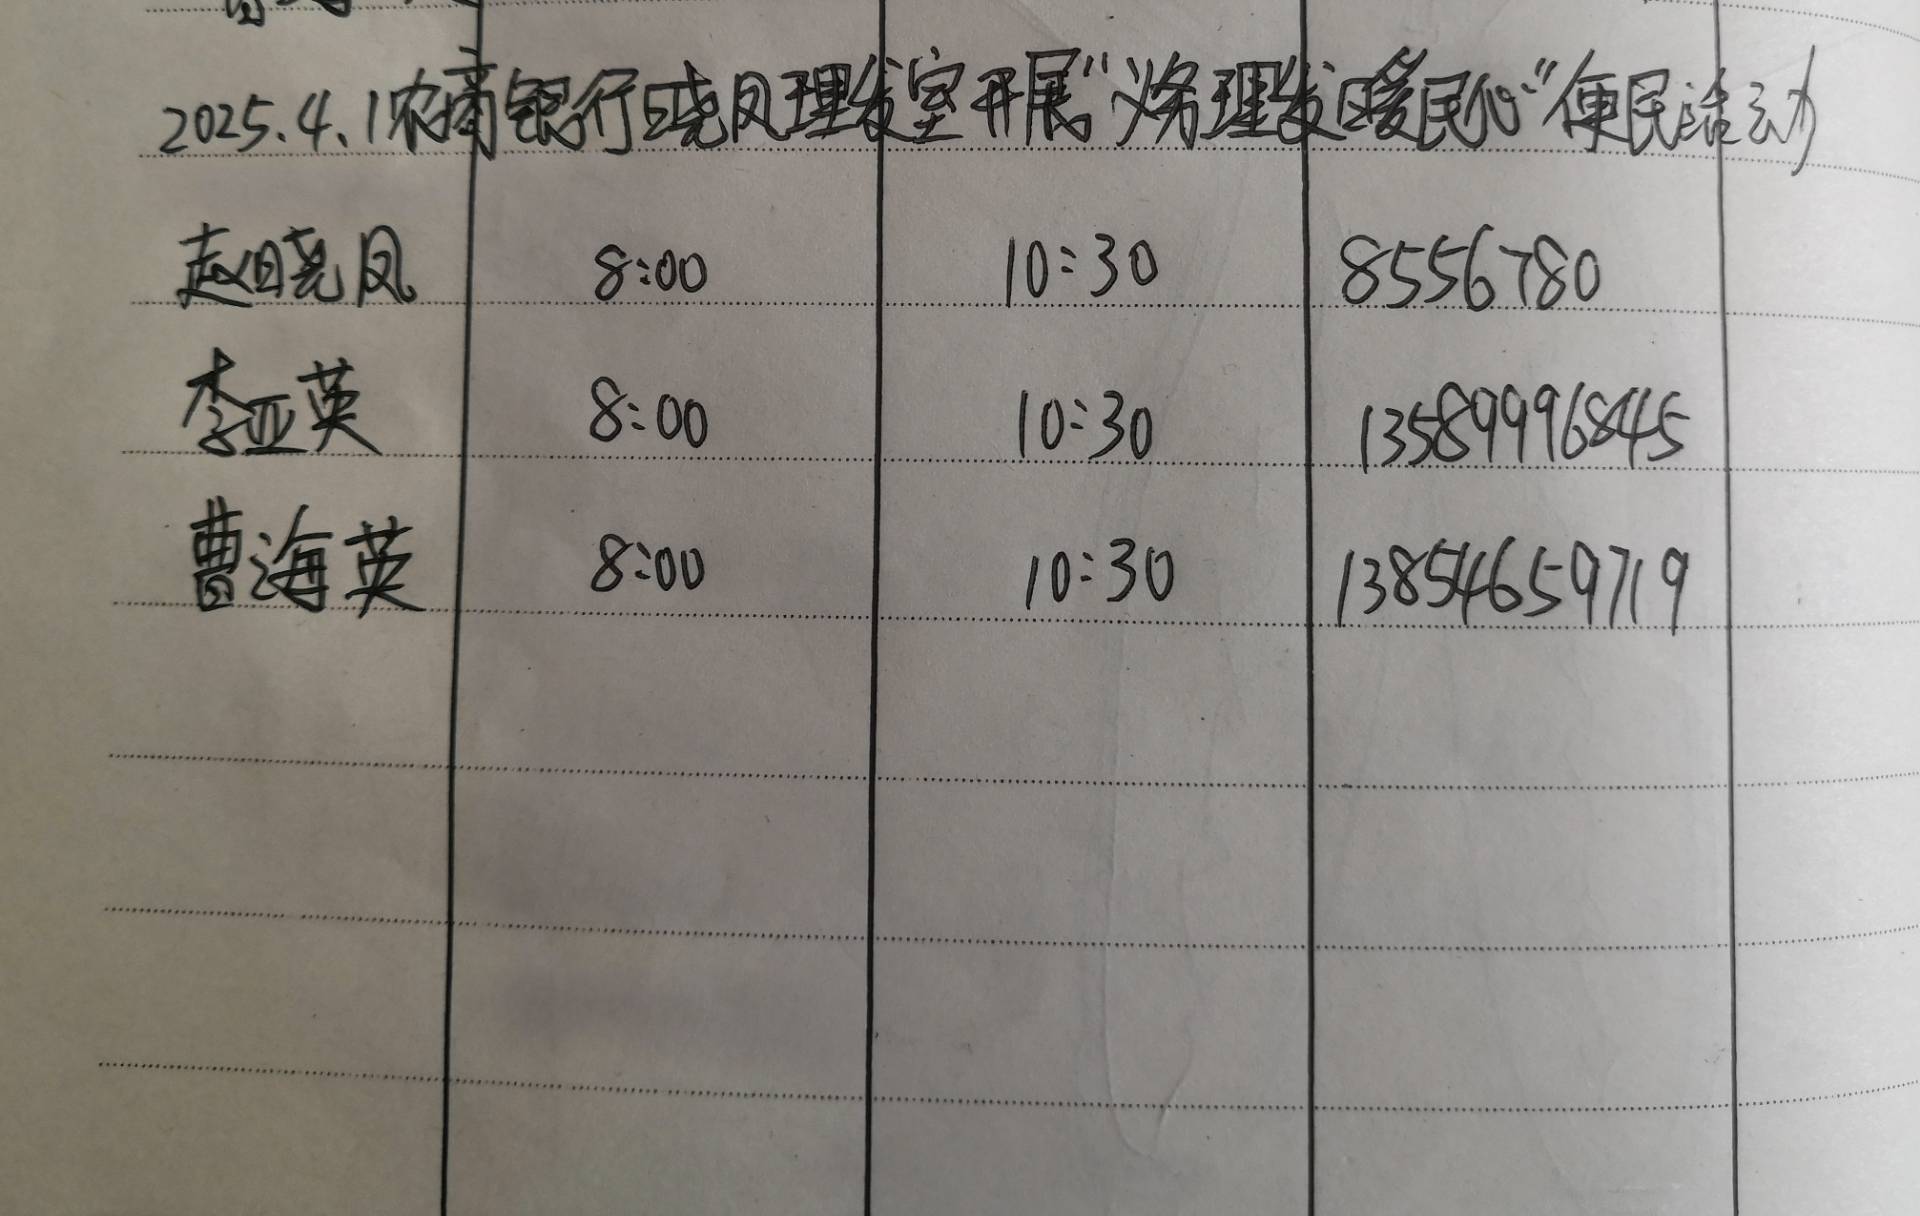 2025.4.1农商银行晓凤理发室开展“义务理发暖民心”便民活动
赵晓凤 8:00 10:30 8556780
李亚英 8:00 10:30 13589996845
曹海英 8:00 10:30 13854659719